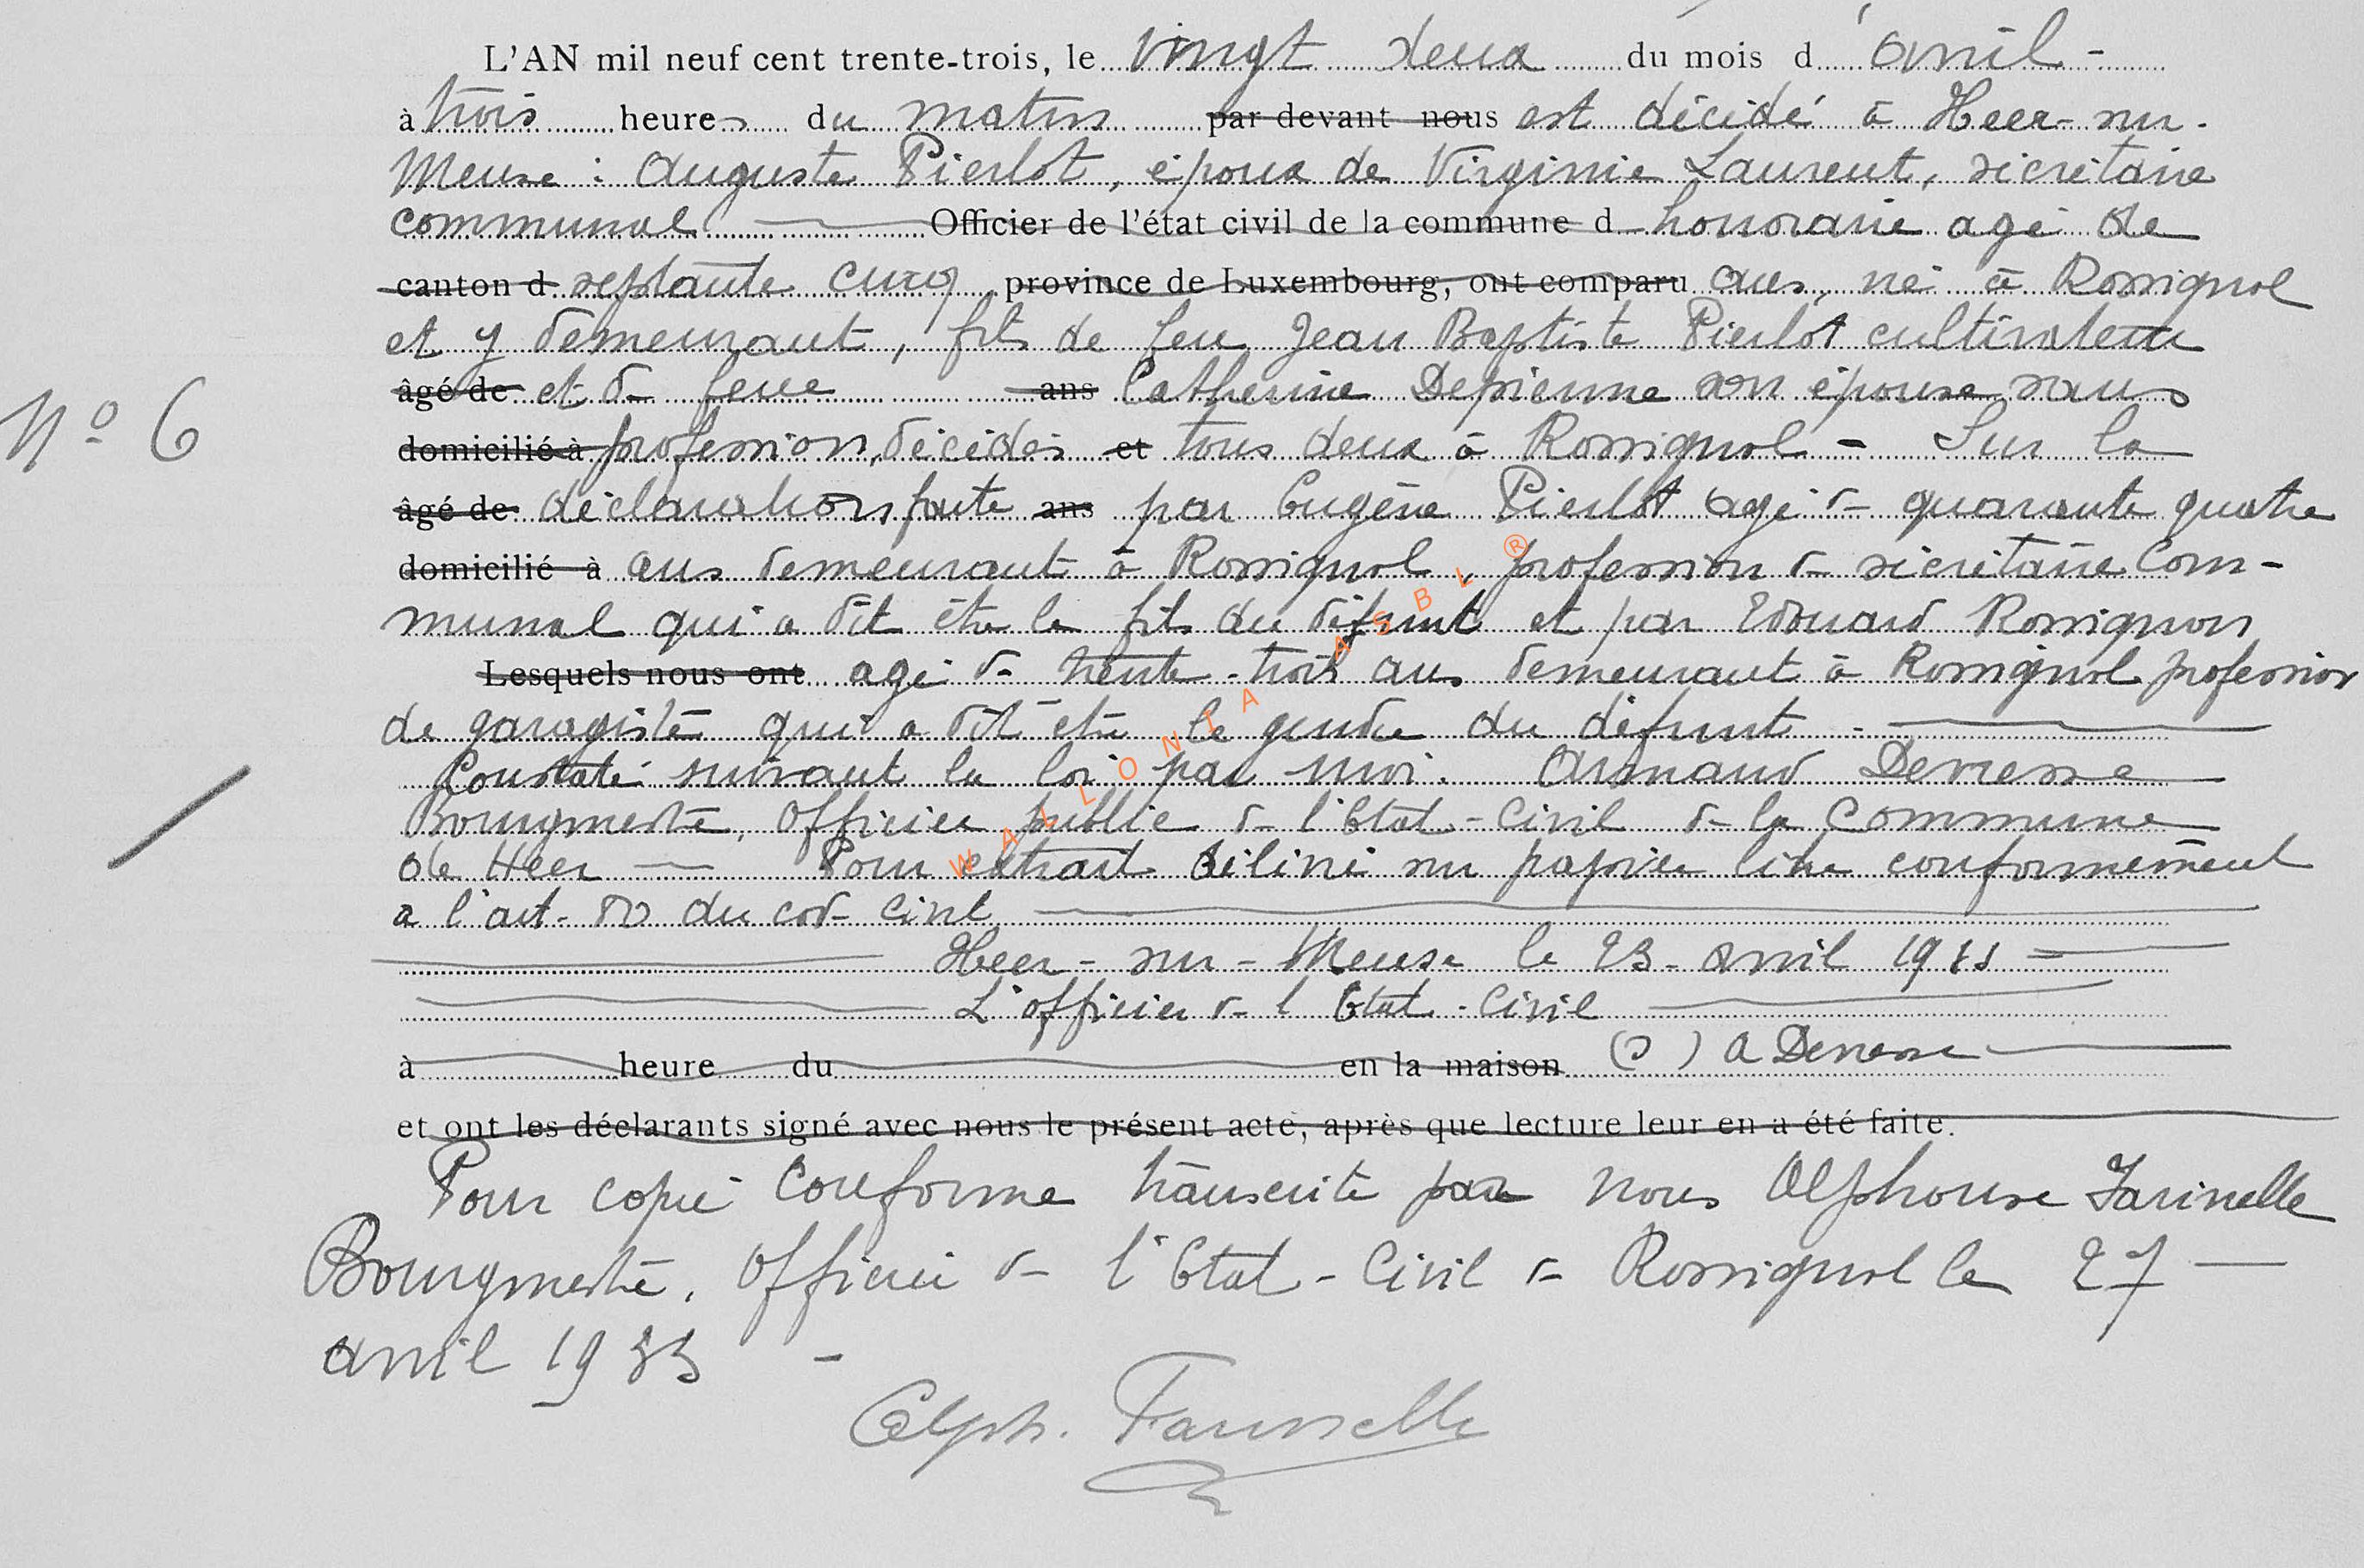 L'AN mil neuf cent trente-trois, le vingt deux du mois d'avril -
à trois heures du matin par devant nous est décédé à Heer-sur-
Meuse : Auguste Pierlot, époux de Virginie Laurent, sécrétaire
communal Officier de l'état civil de la commune d honoraire agé de
canton d septante cinq province de Luxembourg, ont comparu ans, né à Rossignol
et y demeurant, fils de feu Jean Baptiste Pierlot cultivateur
âgé de et de feue ans Catherine Depienne son épouse sans
domicilié à profession, décédés et tous deux à Rossignol - Sur la
âgé de déclaration faite ans par Eugène Pierlot agé de quarante quatre
domicilié à ans demeurant à Rossignol, profession de sécrétaire Com-
munal qui a dit être le fils du défunt et par Edouard Rossignon
Lesquels nous ont agé de trente-trois ans demeurant à Rossignol profession
de garagiste qui a dit etre le gendre du défunt -
Constaté suivant la loi par moi. Armand Devresse
Bourgmestre, Officier public de l'Etat-Civil de la Commune
de Heer — Pour extrait délivré sur papier libre conformément
a l'art. 80 du code Civil
Heer-sur-Meuse le 23 avril 1933
L'officier de l'Etat-Civil
à heure du en la maison (s) A Devresse
et ont les déclarants signé avec nous le présent acte, après que lecture leur en a été faite.
Pour copie Conforme transcrite par nous Alphonse Farinelle
Bourgmestre, Officier de l'Etat-Civil de Rossignol le 27 —
avril 1933 -
Alph. Farinelle
Nº 6
WALLONIA ASBL ®